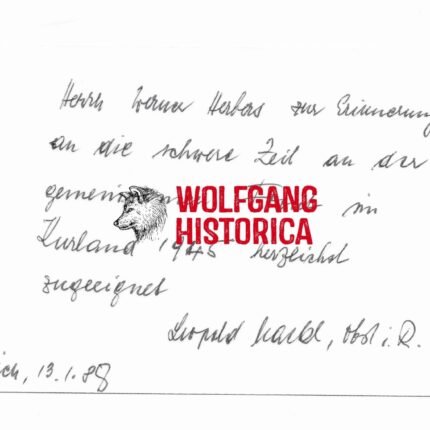 Herrn Werner Herbers zur Erinnerung
an die schwere Zeit an der
WOLFGANG
im
HISTORICA
Kurland 1945 herzlichst
zugeeignet
Leopold, Obst i. R.
13.1.88